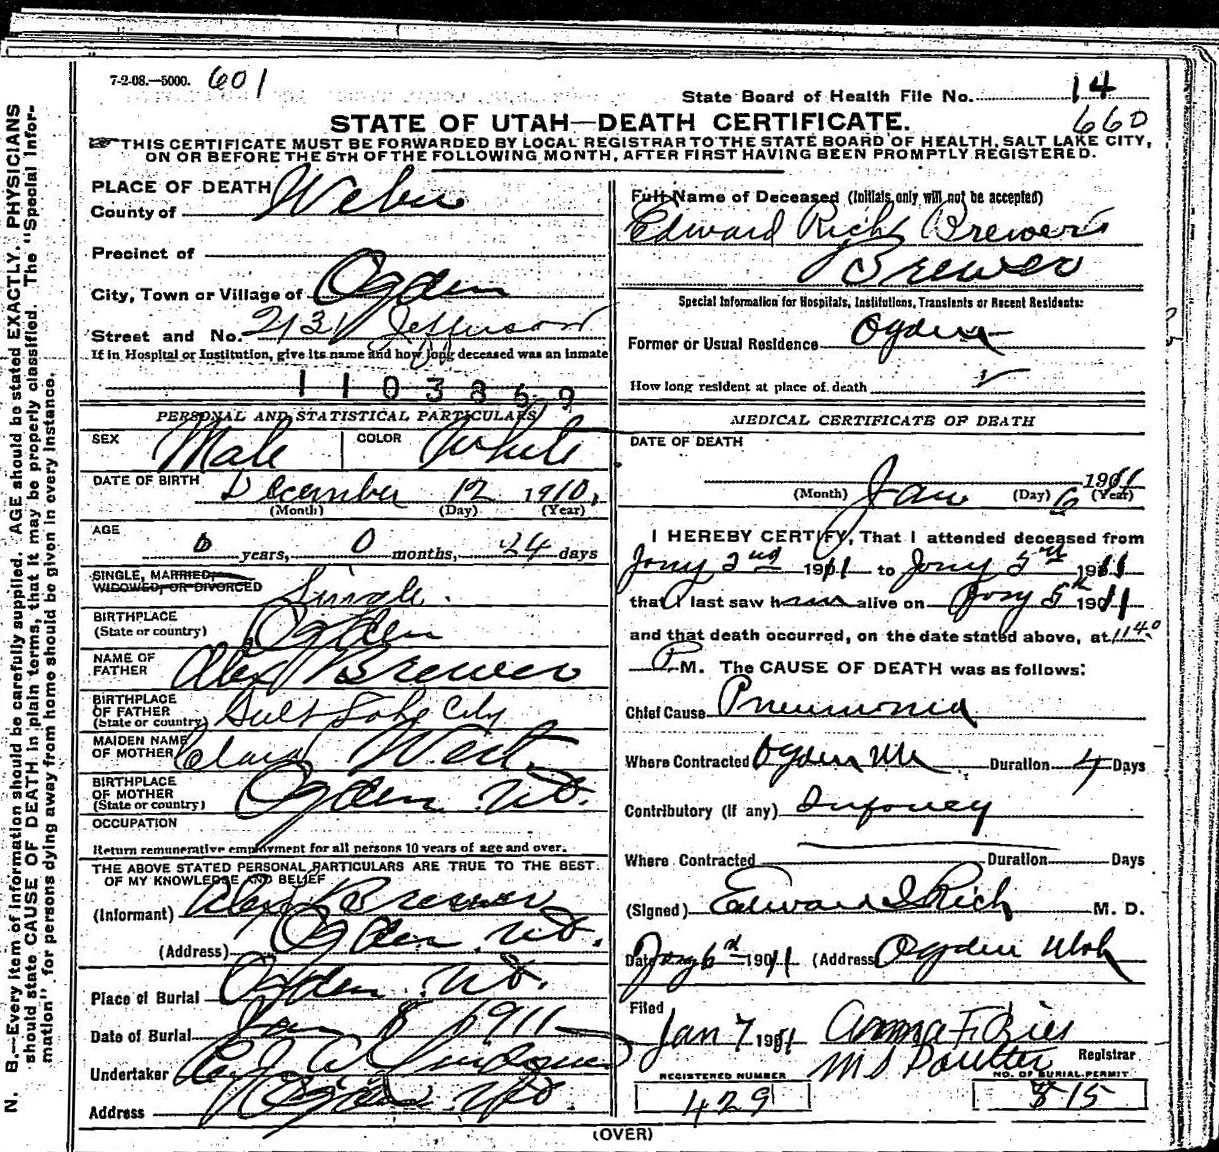 7-2-08.—5000. 601
State Board of Health File No. 14
660
STATE OF UTAH—DEATH CERTIFICATE.
THIS CERTIFICATE MUST BE FORWARDED BY LOCAL REGISTRAR TO THE STATE BOARD OF HEALTH, SALT LAKE CITY,
ON OR BEFORE THE 5TH OF THE FOLLOWING MONTH, AFTER FIRST HAVING BEEN PROMPTLY REGISTERED.
N. B.—Every item of information should be carefully supplied. AGE should be stated EXACTLY. PHYSICIANS
should state CAUSE OF DEATH in plain terms, that it may be properly classified. The "Special Infor-
mation" for persons dying away from home should be given in every instance.
PLACE OF DEATH
County of Weber
Precinct of
City, Town or Village of Ogden
Street and No. 2131 Jefferson
If in Hospital or Institution, give its name and how long deceased was an inmate
1103869
PERSONAL AND STATISTICAL PARTICULARS
SEX Male COLOR White
DATE OF BIRTH December 12 1910.
(Month) (Day) (Year)
AGE
0 years, 0 months, 24 days
SINGLE, MARRIED,
WIDOWED, OR DIVORCED Single.
BIRTHPLACE
(State or country) Ogden
NAME OF
FATHER Alex Brewer
BIRTHPLACE
OF FATHER
(State or country) Salt Lake City
MAIDEN NAME
OF MOTHER Clara West.
BIRTHPLACE
OF MOTHER
(State or country) Ogden Ut.
OCCUPATION
Return remunerative employment for all persons 10 years of age and over.
THE ABOVE STATED PERSONAL PARTICULARS ARE TRUE TO THE BEST
OF MY KNOWLEDGE AND BELIEF
(Informant) Alex Brewer
(Address) Ogden Ut.
Place of Burial Ogden Ut.
Date of Burial Jan 8 1911
Undertaker
Address Ogden Ut
Full Name of Deceased (Initials only will not be accepted)
Edward Rich Brewer
Brewer
Special Information for Hospitals, Institutions, Transients or Recent Residents:
Former or Usual Residence Ogden
How long resident at place of death
MEDICAL CERTIFICATE OF DEATH
DATE OF DEATH
Jan 6 1911
(Month) (Day) (Year)
I HEREBY CERTIFY, That I attended deceased from
Jany 2nd 1911 to Jany 5th 1911
that I last saw him alive on Jany 5th 1911
and that death occurred, on the date stated above, at 11 40
P M. The CAUSE OF DEATH was as follows:
Chief Cause Pneumonia
Where Contracted Ogden Duration 4 Days
Contributory (if any) Infancy
Where Contracted Duration Days
(Signed) Edward I Rich M. D.
Date Jany 6 1911 (Address Ogden Utah
Filed
Jan 7 1911
Registrar
REGISTERED NUMBER NO. OF BURIAL PERMIT
429 815
(OVER)